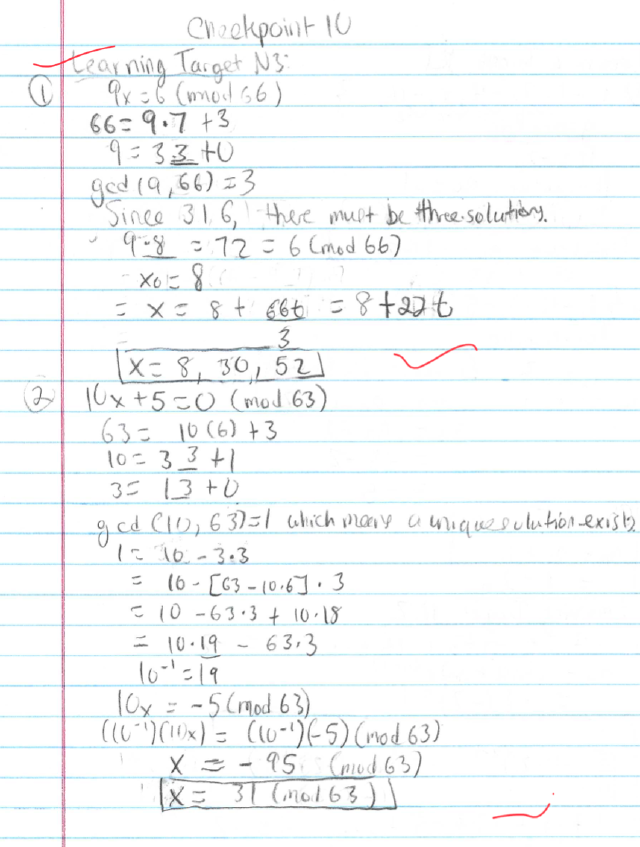 Checkpoint 10
Learning Target N3:
① 9x = 6 (mod 66)
66 = 9·7 + 3
9 = 3 3 + 0
gcd (9, 66) = 3
Since 3|6, there must be three solutions.
9·8 = 72 = 6 (mod 66)
x₀ = 8
= x = 8 + 66t/3 = 8 + 22t
x = 8, 30, 52
② 10x + 5 = 0 (mod 63)
63 = 10(6) + 3
10 = 3 3 + 1
3 = 1 3 + 0
gcd (10, 63) = 1 which means a unique solution exists.
1 = 10 - 3·3
= 10 - [63 - 10·6] · 3
= 10 - 63·3 + 10·18
= 10·19 - 63·3
10⁻¹ = 19
10x = -5 (mod 63)
((10⁻¹)(10x) = (10⁻¹)(-5) (mod 63)
x = -95 (mod 63)
x = 31 (mod 63)